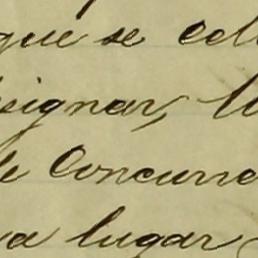 que se cele
signar, lu
de Concurre
va lugar